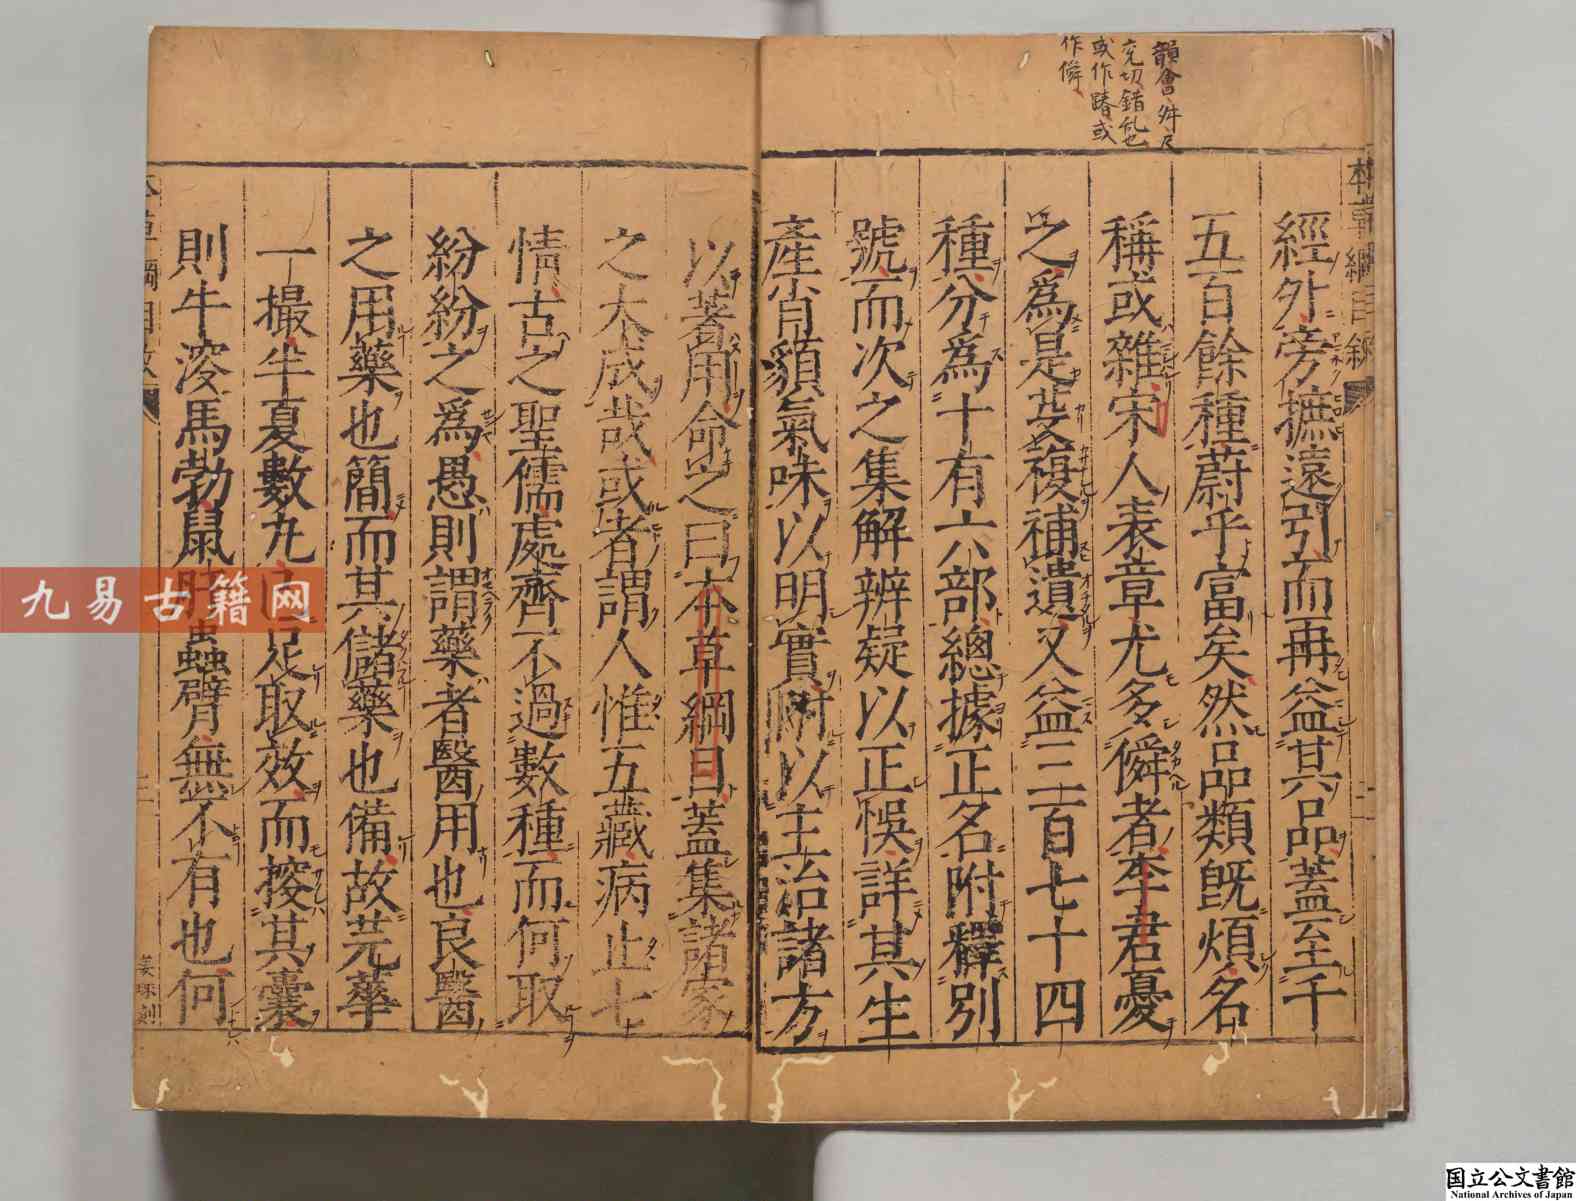 韻會舛尺
兗切錯亂也
或作踳或
作僢
經外旁摭遠引而再益其品蓋至千
五百餘種蔚乎富矣然品類旣煩名
稱或雜宋人表章尤多僢者李君憂
之爲是芟複補遺又益三百七十四
種分爲十有六部總據正名附釋別
號而次之集解辨疑以正悞詳其生
產肖貌氣味以明實附以主治諸方
以著用命之曰本草綱目蓋集諸家
之大成哉或者謂人惟五藏病止七
情古之聖儒處齊不過數種而何取
紛紛之爲愚則謂藥者醫用也良醫
之用藥也簡而其儲藥也備故芫華
一撮半夏數丸
取效而搾其囊
則牛溲馬勃鼠肝蟲臂無不有也何
本草綱目敘
姜球刻
九易古籍网
国立公文書館
National Archives of Japan